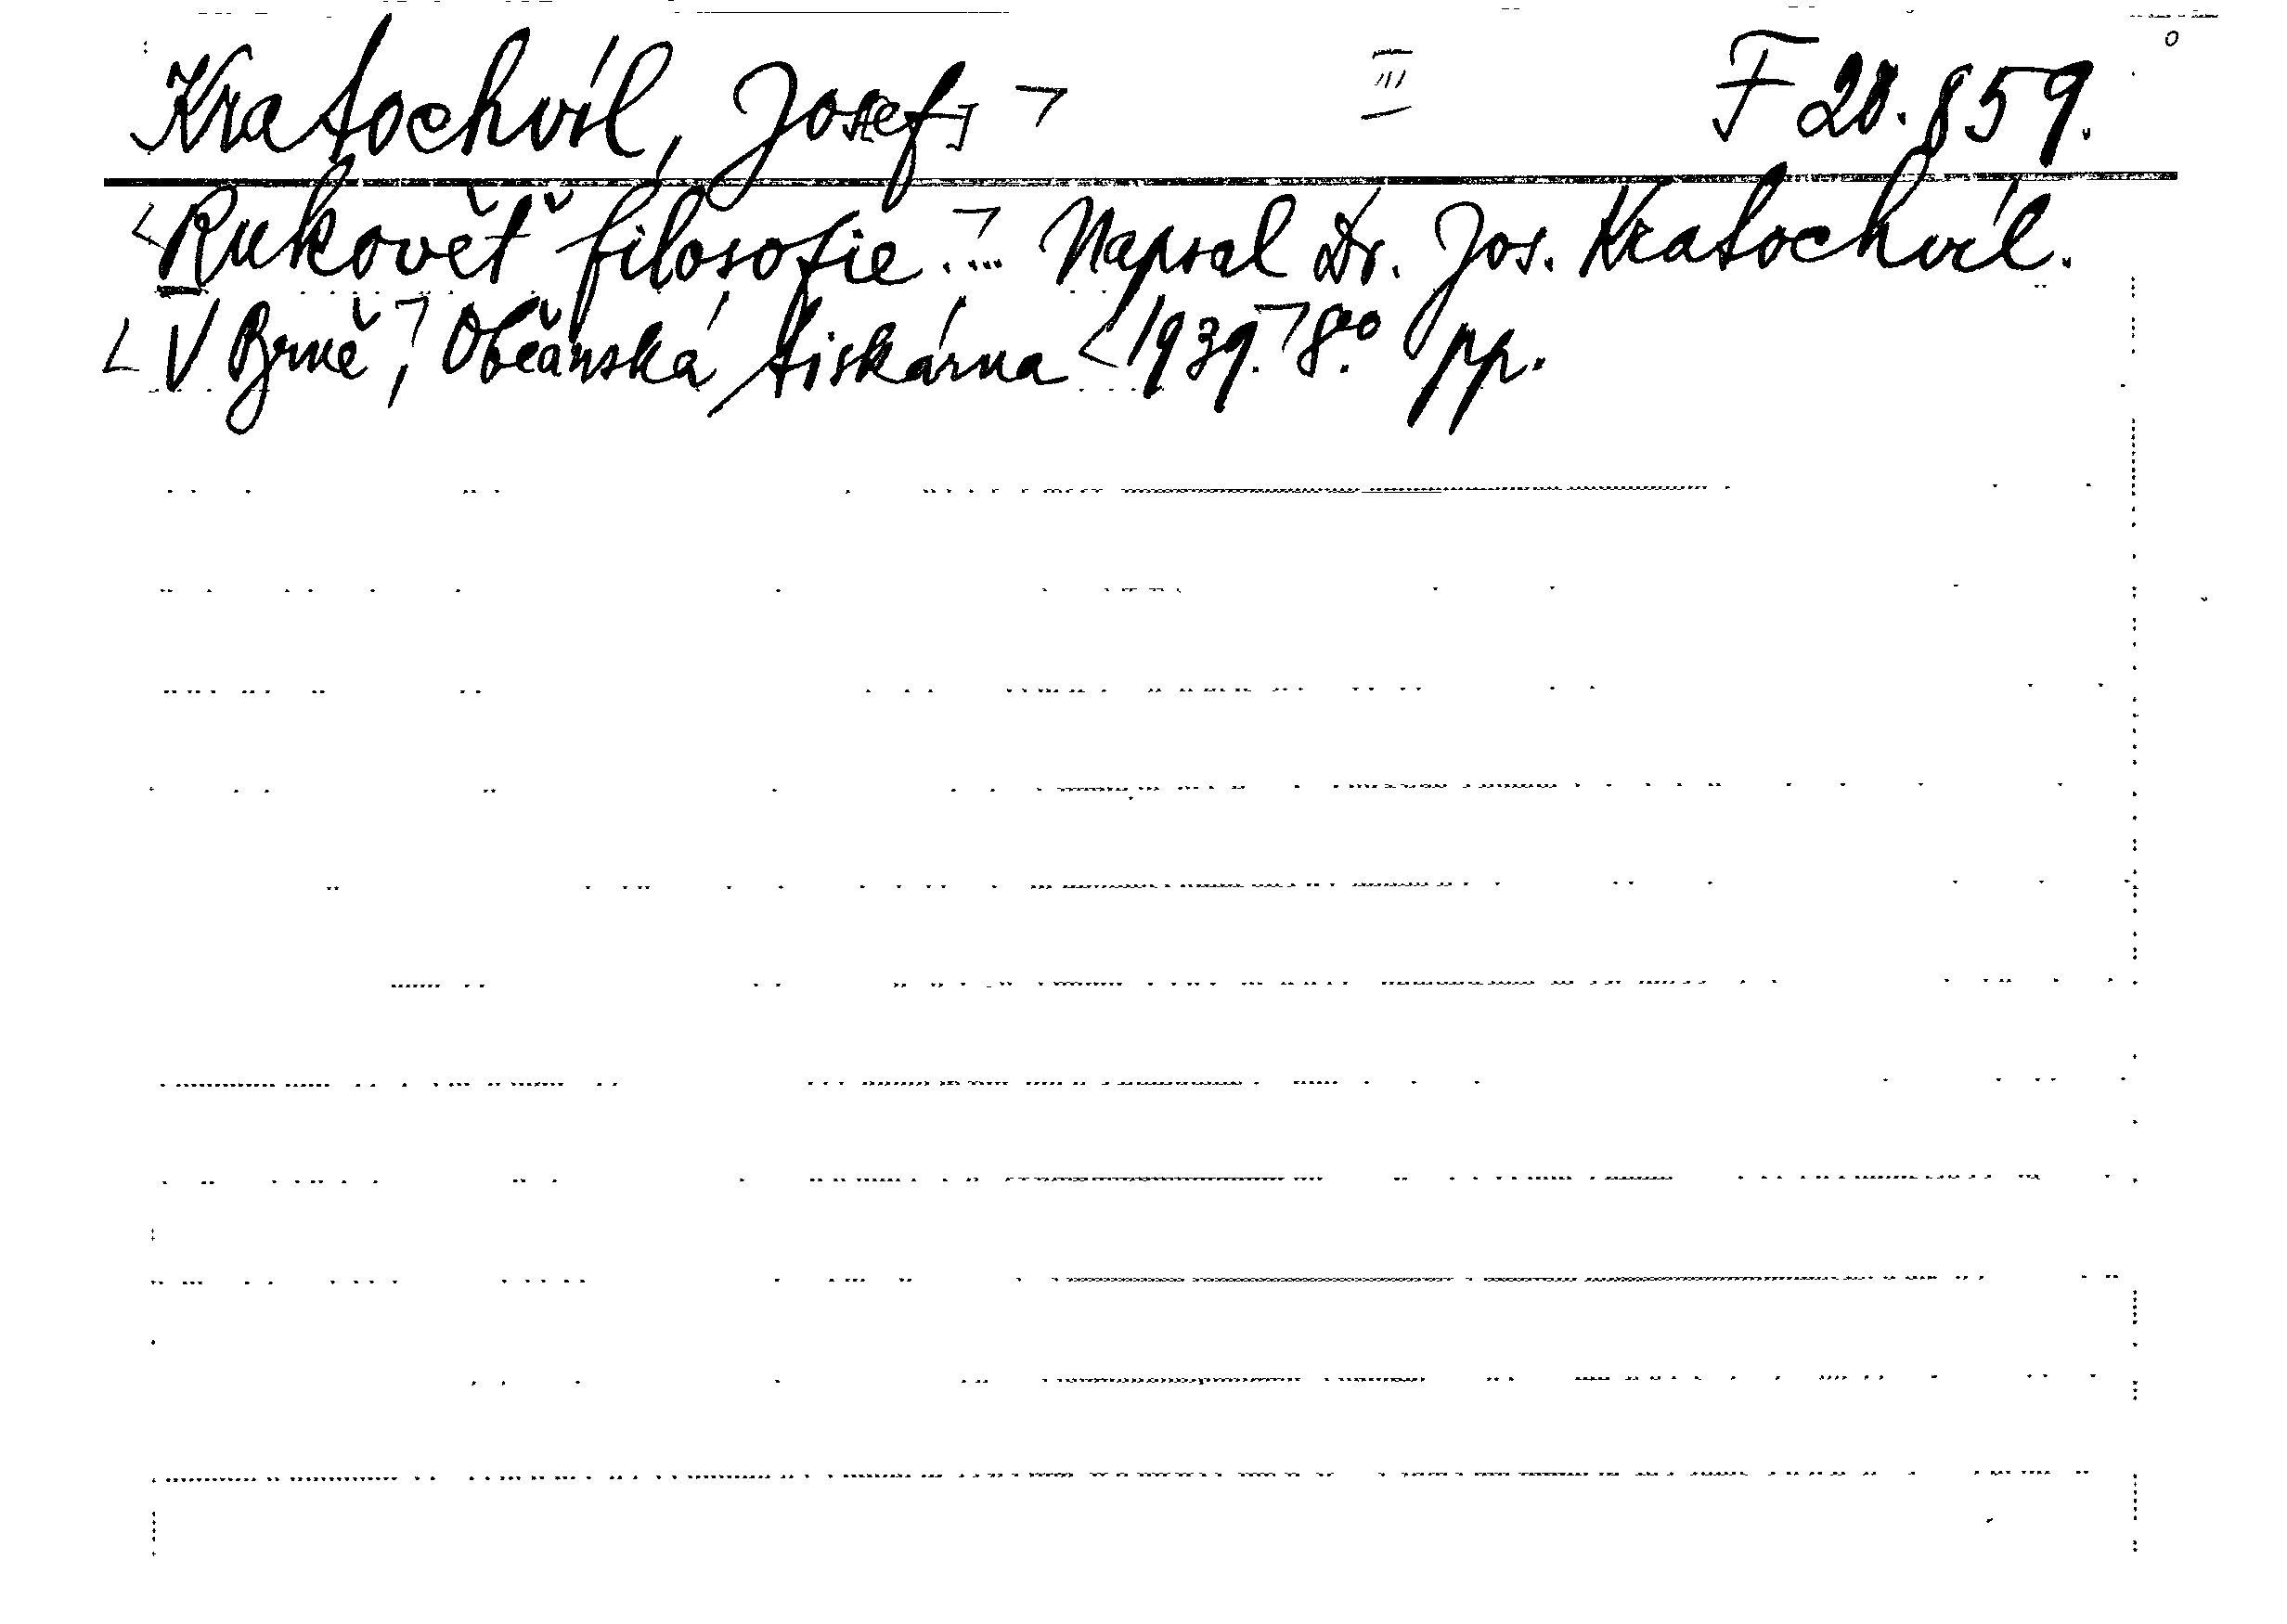 Kratochvíl, Jos[ef] III F 20.859.
Rukověť filosofie.... Napsal Dr. Jos. Kratochvíl.
V Brně, Občanská tiskárna 1939. 8.° pp.